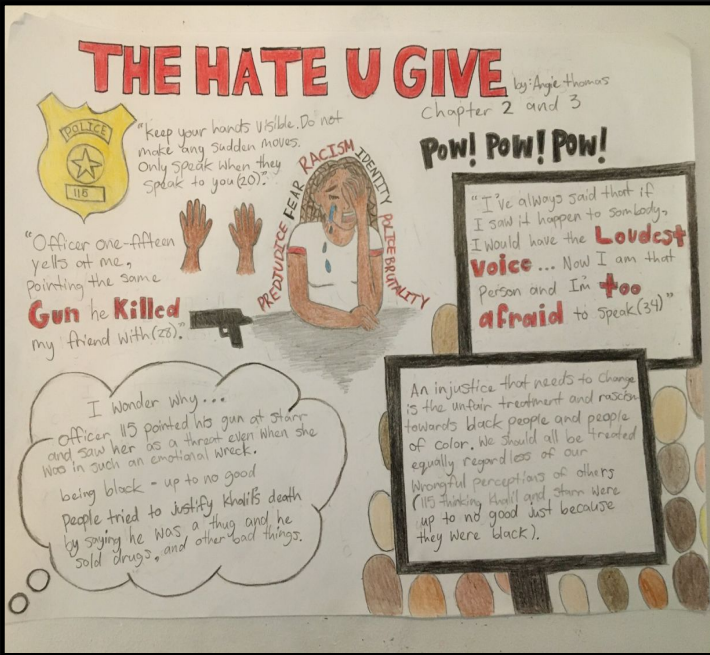 THE HATE U GIVE
by: Angie Thomas
Chapter 2 and 3
POLICE
115
"Keep your hands visible. Do not
make any sudden moves.
Only speak when they
speak to you(20)."
PREDJUDICE FEAR RACISM IDENTITY POLICE BRUTALITY
POW! POW! POW!
"I've always said that if
I saw it happen to sombody,
I would have the Loudest
Voice ... Now I am that
Person and I'm too
afraid to speak(34)"
"Officer one-fifteen
yells at me,
pointing the same
Gun he Killed
my friend with(28)."
I wonder why...
Officer 115 pointed his gun at starr
and saw her as a threat even when she
was in such an emotional wreck.
being black - up to no good
People tried to justify Khalil's death
by saying he was a thug and he
sold drugs, and other bad things.
An injustice that needs to change
is the unfair treatment and rascism
towards black people and people
of color. We should all be treated
equally regardless of our
wrongful perceptions of others
(115 thinking Khalil and starr were
up to no good Just because
they were black).